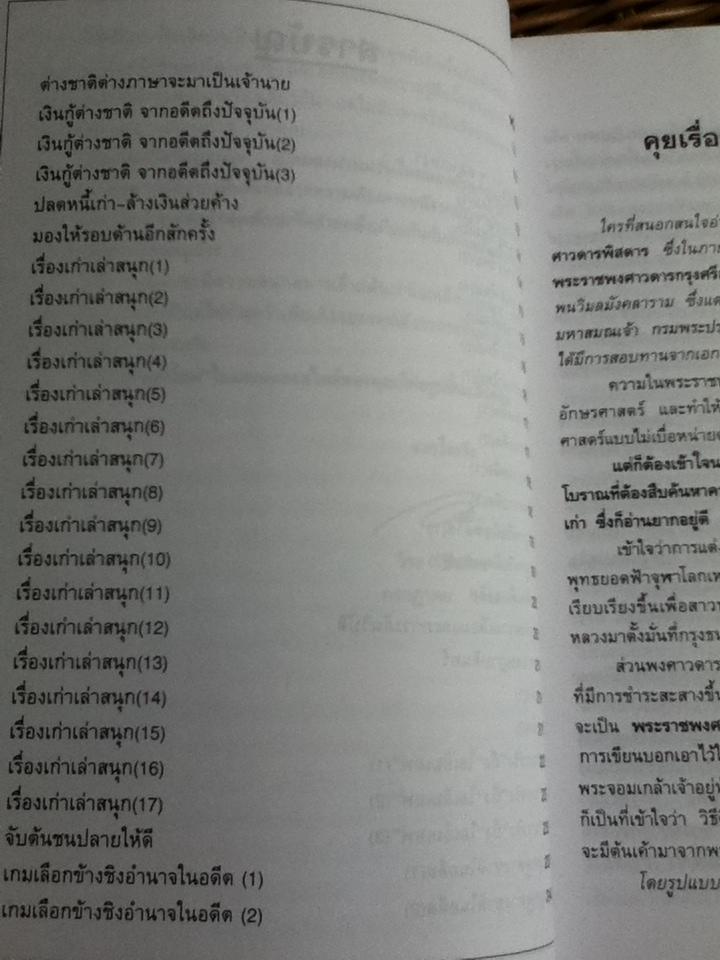 ต่างชาติต่างภาษาจะมาเป็นเจ้านาย
เงินกู้ต่างชาติ จากอดีตถึงปัจจุบัน(1)
เงินกู้ต่างชาติ จากอดีตถึงปัจจุบัน(2)
เงินกู้ต่างชาติ จากอดีตถึงปัจจุบัน(3)
ปลดหนี้เก่า-ล้างเงินส่วยค้าง
มองให้รอบด้านอีกสักครั้ง
เรื่องเก่าเล่าสนุก(1)
เรื่องเก่าเล่าสนุก(2)
เรื่องเก่าเล่าสนุก(3)
เรื่องเก่าเล่าสนุก(4)
เรื่องเก่าเล่าสนุก(5)
เรื่องเก่าเล่าสนุก(6)
เรื่องเก่าเล่าสนุก(7)
เรื่องเก่าเล่าสนุก(8)
เรื่องเก่าเล่าสนุก(9)
เรื่องเก่าเล่าสนุก(10)
เรื่องเก่าเล่าสนุก(11)
เรื่องเก่าเล่าสนุก(12)
เรื่องเก่าเล่าสนุก(13)
เรื่องเก่าเล่าสนุก(14)
เรื่องเก่าเล่าสนุก(15)
เรื่องเก่าเล่าสนุก(16)
เรื่องเก่าเล่าสนุก(17)
จับต้นชนปลายให้ดี
เกมเลือกข้างชิงอำนาจในอดีต (1)
เกมเลือกข้างชิงอำนาจในอดีต (2)
คุยเรื่อ
ใครที่สนอกสนใจอ่
ศาวดารพิสดาร ซึ่งในภาย
พระราชพงศาวดารกรุงศรีอ
พนวิมลมังคลาราม ซึ่งแต่
มหาสมณเจ้า กรมพระปร
ได้มีการสอบทานจากเอก
ความในพระราชพ
อักษรศาสตร์ และทำให้
ศาสตร์แบบไม่เบื่อหน่าย
แต่ก็ต้องเข้าใจน
โบราณที่ต้องสืบค้นหาคว
เก่า ซึ่งก็อ่านยากอยู่ดี
เข้าใจว่าการแต่ง
พุทธยอดฟ้าจุฬาโลกมห
เรียบเรียงขึ้นเพื่อสาว
หลวงมาตั้งมั่นที่กรุงธน
ส่วนพงศาวดาร
ที่มีการชำระสะสางขึ้น
จะเป็น พระราชพงศ
การเขียนบอกเอาไว้ใ
พระจอมเกล้าเจ้าอยู่ห
ก็เป็นที่เข้าใจว่า วิธี
จะมีต้นเค้ามาจากพ
โดยรูปแบบ